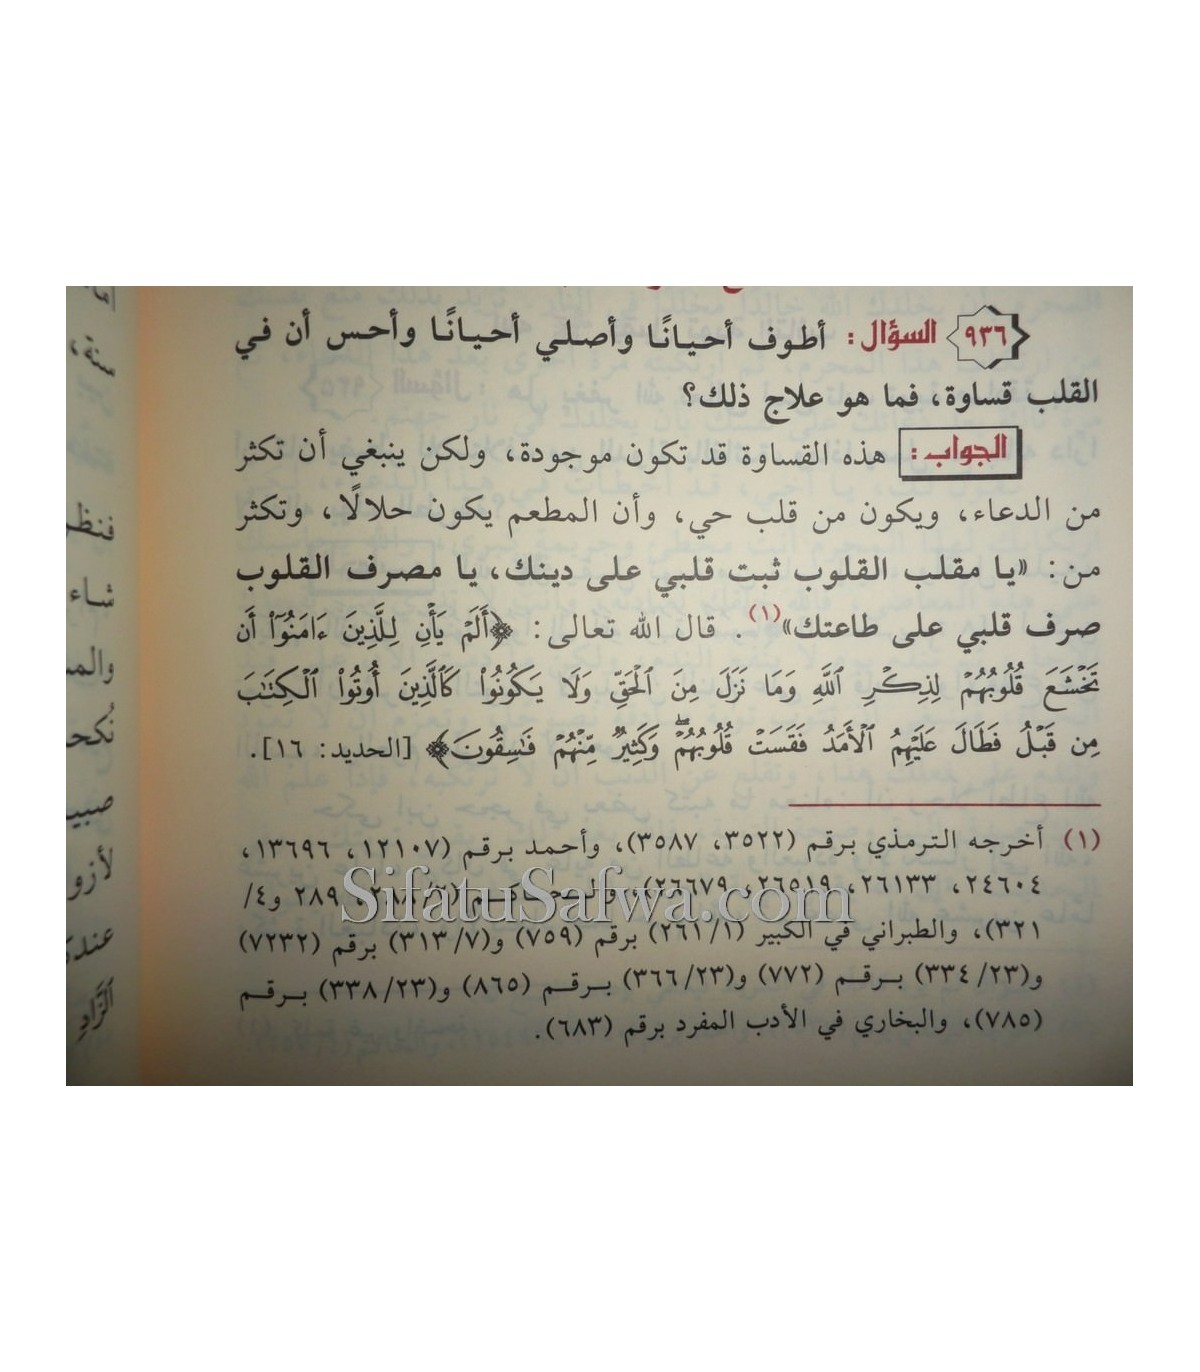 ٩٣٦ السؤال: أطوف أحيانًا وأصلي أحيانًا وأحس أن في
القلب قساوة، فما هو علاج ذلك؟
الجواب: هذه القساوة قد تكون موجودة، ولكن ينبغي أن تكثر
من الدعاء، ويكون من قلب حي، وأن المطعم يكون حلالًا، وتكثر
من: «يا مقلب القلوب ثبت قلبي على دينك، يا مصرف القلوب
صرف قلبي على طاعتك»(١). قال الله تعالى: ﴿أَلَمْ يَأْنِ لِلَّذِينَ ءَامَنُوٓا۟ أَن
تَخْشَعَ قُلُوبُهُمْ لِذِكْرِ ٱللَّهِ وَمَا نَزَلَ مِنَ ٱلْحَقِّ وَلَا يَكُونُوا۟ كَٱلَّذِينَ أُوتُوا۟ ٱلْكِتَٰبَ
مِن قَبْلُ فَطَالَ عَلَيْهِمُ ٱلْأَمَدُ فَقَسَتْ قُلُوبُهُمْ ۖ وَكَثِيرٌ مِّنْهُمْ فَٰسِقُونَ﴾ [الحديد: ١٦].
(١) أخرجه الترمذي برقم (٣٥٢٢، ٣٥٨٧)، وأحمد برقم (١٢١٠٧، ١٣٦٩٦،
٢٤٦٠٤، ٢٦١٣٣، ٢٦٥١٩، ٢٦٦٧٩)، والحاكم ٢٨٩ و٤/
٣٢١)، والطبراني في الكبير (٢٦١/١) برقم (٧٥٩) و(٣١٣/٧) برقم (٧٢٣٢)
و(٣٣٤/٢٣) برقم (٧٧٢) و(٣٦٦/٢٣) برقم (٨٦٥) و(٣٣٨/٢٣) برقم
(٧٨٥)، والبخاري في الأدب المفرد برقم (٦٨٣).
SifatuSafwa.com
سنة،
فنظر
شاء
صبي
لأزو
ٱلزَّادِ